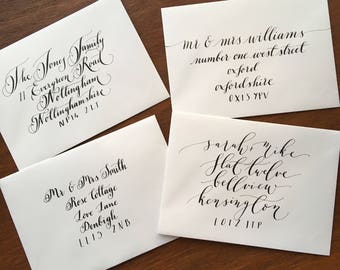 The Jones Family
11 Evergreen Road
Nottingham
Nottinghamshire
NF16 2LI
mr & mrs williams
number one west street
oxford
oxfordshire
OX15 7PV
Mr & Mrs South
Rose Cottage
Love Lane
Denbigh
LL15 2NB
sarah & mike
flat twelve
bellview
kensington
LO12 11P